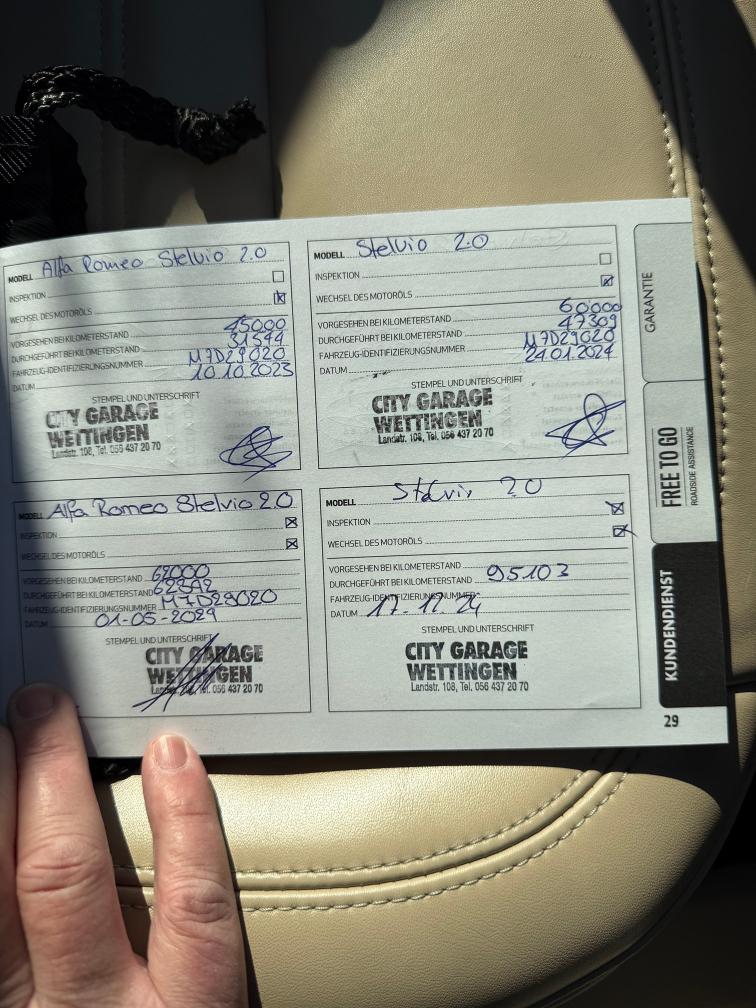 MODELL Alfa Romeo Stelvio 2.0
INSPEKTION
WECHSEL DES MOTORÖLS
VORGESEHEN BEI KILOMETERSTAND 45000
DURCHGEFÜHRT BEI KILOMETERSTAND 31544
FAHRZEUG-IDENTIFIZIERUNGSNUMMER M7D29020
DATUM 10.10.2023
STEMPEL UND UNTERSCHRIFT
CITY GARAGE
WETTINGEN
Landstr. 108, Tel. 056 437 20 70
MODELL Stelvio 2.0
INSPEKTION
WECHSEL DES MOTORÖLS
VORGESEHEN BEI KILOMETERSTAND 60'000
DURCHGEFÜHRT BEI KILOMETERSTAND 47309
FAHRZEUG-IDENTIFIZIERUNGSNUMMER M7D29020
DATUM 24.01.2024
STEMPEL UND UNTERSCHRIFT
CITY GARAGE
WETTINGEN
Landstr. 108, Tel. 056 437 20 70
MODELL Alfa Romeo Stelvio 2.0
INSPEKTION
WECHSEL DES MOTORÖLS
VORGESEHEN BEI KILOMETERSTAND
DURCHGEFÜHRT BEI KILOMETERSTAND
FAHRZEUG-IDENTIFIZIERUNGSNUMMER M7D29020
DATUM 01-05-2024
STEMPEL UND UNTERSCHRIFT
CITY GARAGE
WETTINGEN
Landstr. 108, Tel. 056 437 20 70
MODELL Stelvio 2.0
INSPEKTION
WECHSEL DES MOTORÖLS
VORGESEHEN BEI KILOMETERSTAND
DURCHGEFÜHRT BEI KILOMETERSTAND 95103
FAHRZEUG-IDENTIFIZIERUNGSNUMMER
DATUM 17.12.24
STEMPEL UND UNTERSCHRIFT
CITY GARAGE
WETTINGEN
Landstr. 108, Tel. 056 437 20 70
GARANTIE
FREE TO GO
ROADSIDE ASSISTANCE
KUNDENDIENST
29